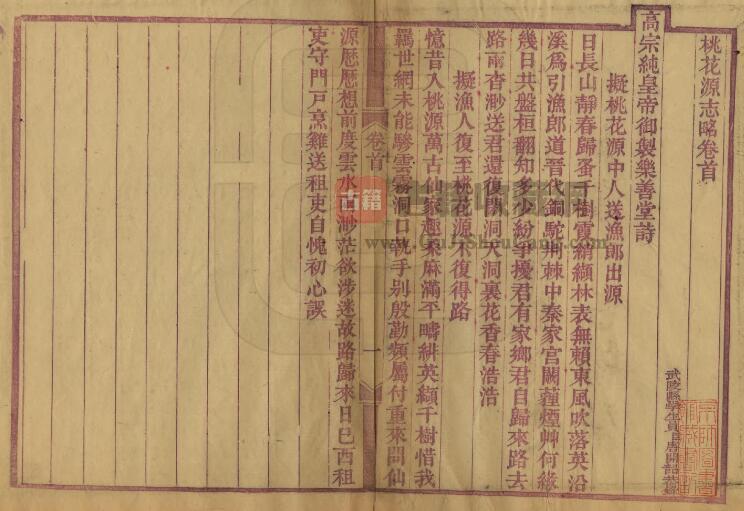 桃花源志略卷首
高宗純皇帝御製樂善堂詩
擬桃花源中人送漁郎出源
日長山靜春歸蚤千樹霞綃纈林表無賴東風吹落英沿
溪為引漁郎道晉代銅駝荆棘中秦家宮闕蓳煙艸何緣
幾日共盤桓翻知多少紛爭擾君有家鄉君自歸來路去
路兩杳渺送君還復閉洞天洞裏花香春浩浩
擬漁人復至桃花源不復得路
憶昔入桃源萬古仙家趣桑麻滿平疇緋英纈千樹惜我
羈世網未能驂雲霧洞口執手别殷勤頻屬付重來問仙
源歷歷想前度雲水渺茫欲涉迷故路歸來日已西租
吏守門戸烹雞送租吏自愧初心誤
卷首
一
古籍